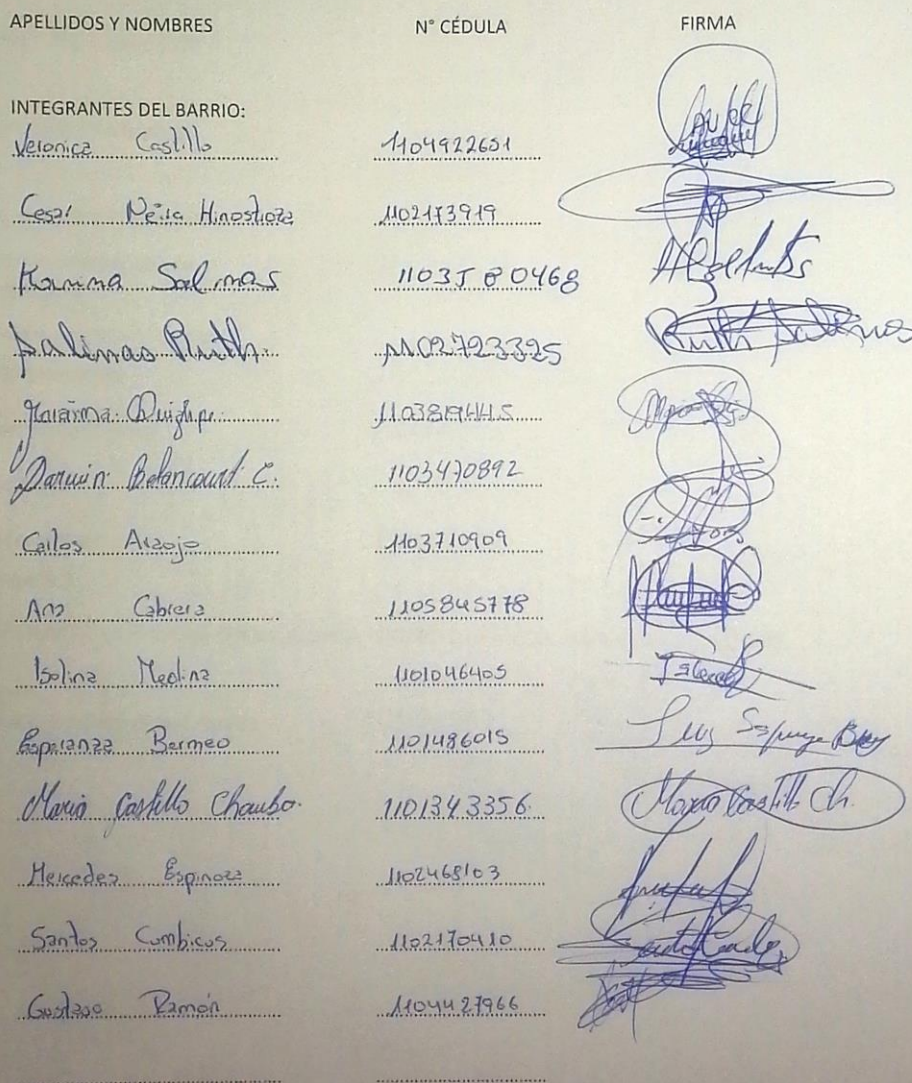 APELLIDOS Y NOMBRES N° CÉDULA FIRMA
INTEGRANTES DEL BARRIO:
Veronica Castillo 1104922651
Cesar Neira Hinostroza 1102173919
Karinna Salinas 1103580468
Salinas Ruth 1102723325 Ruth Salinas
1103819445
Darwin Betancourt C. 1103470892
Carlos Araojo 1103710909
Ana Cabrera 1105845778
Isolina Medina 1101046405
Esperanza Bermeo 1101486015
Maria Castillo Chamba 1101343356 Maria Castillo Ch.
Mercedes Espinoza 1102468103
Santos Cumbicus 1102170410
Gustavo Ramón 1104427966